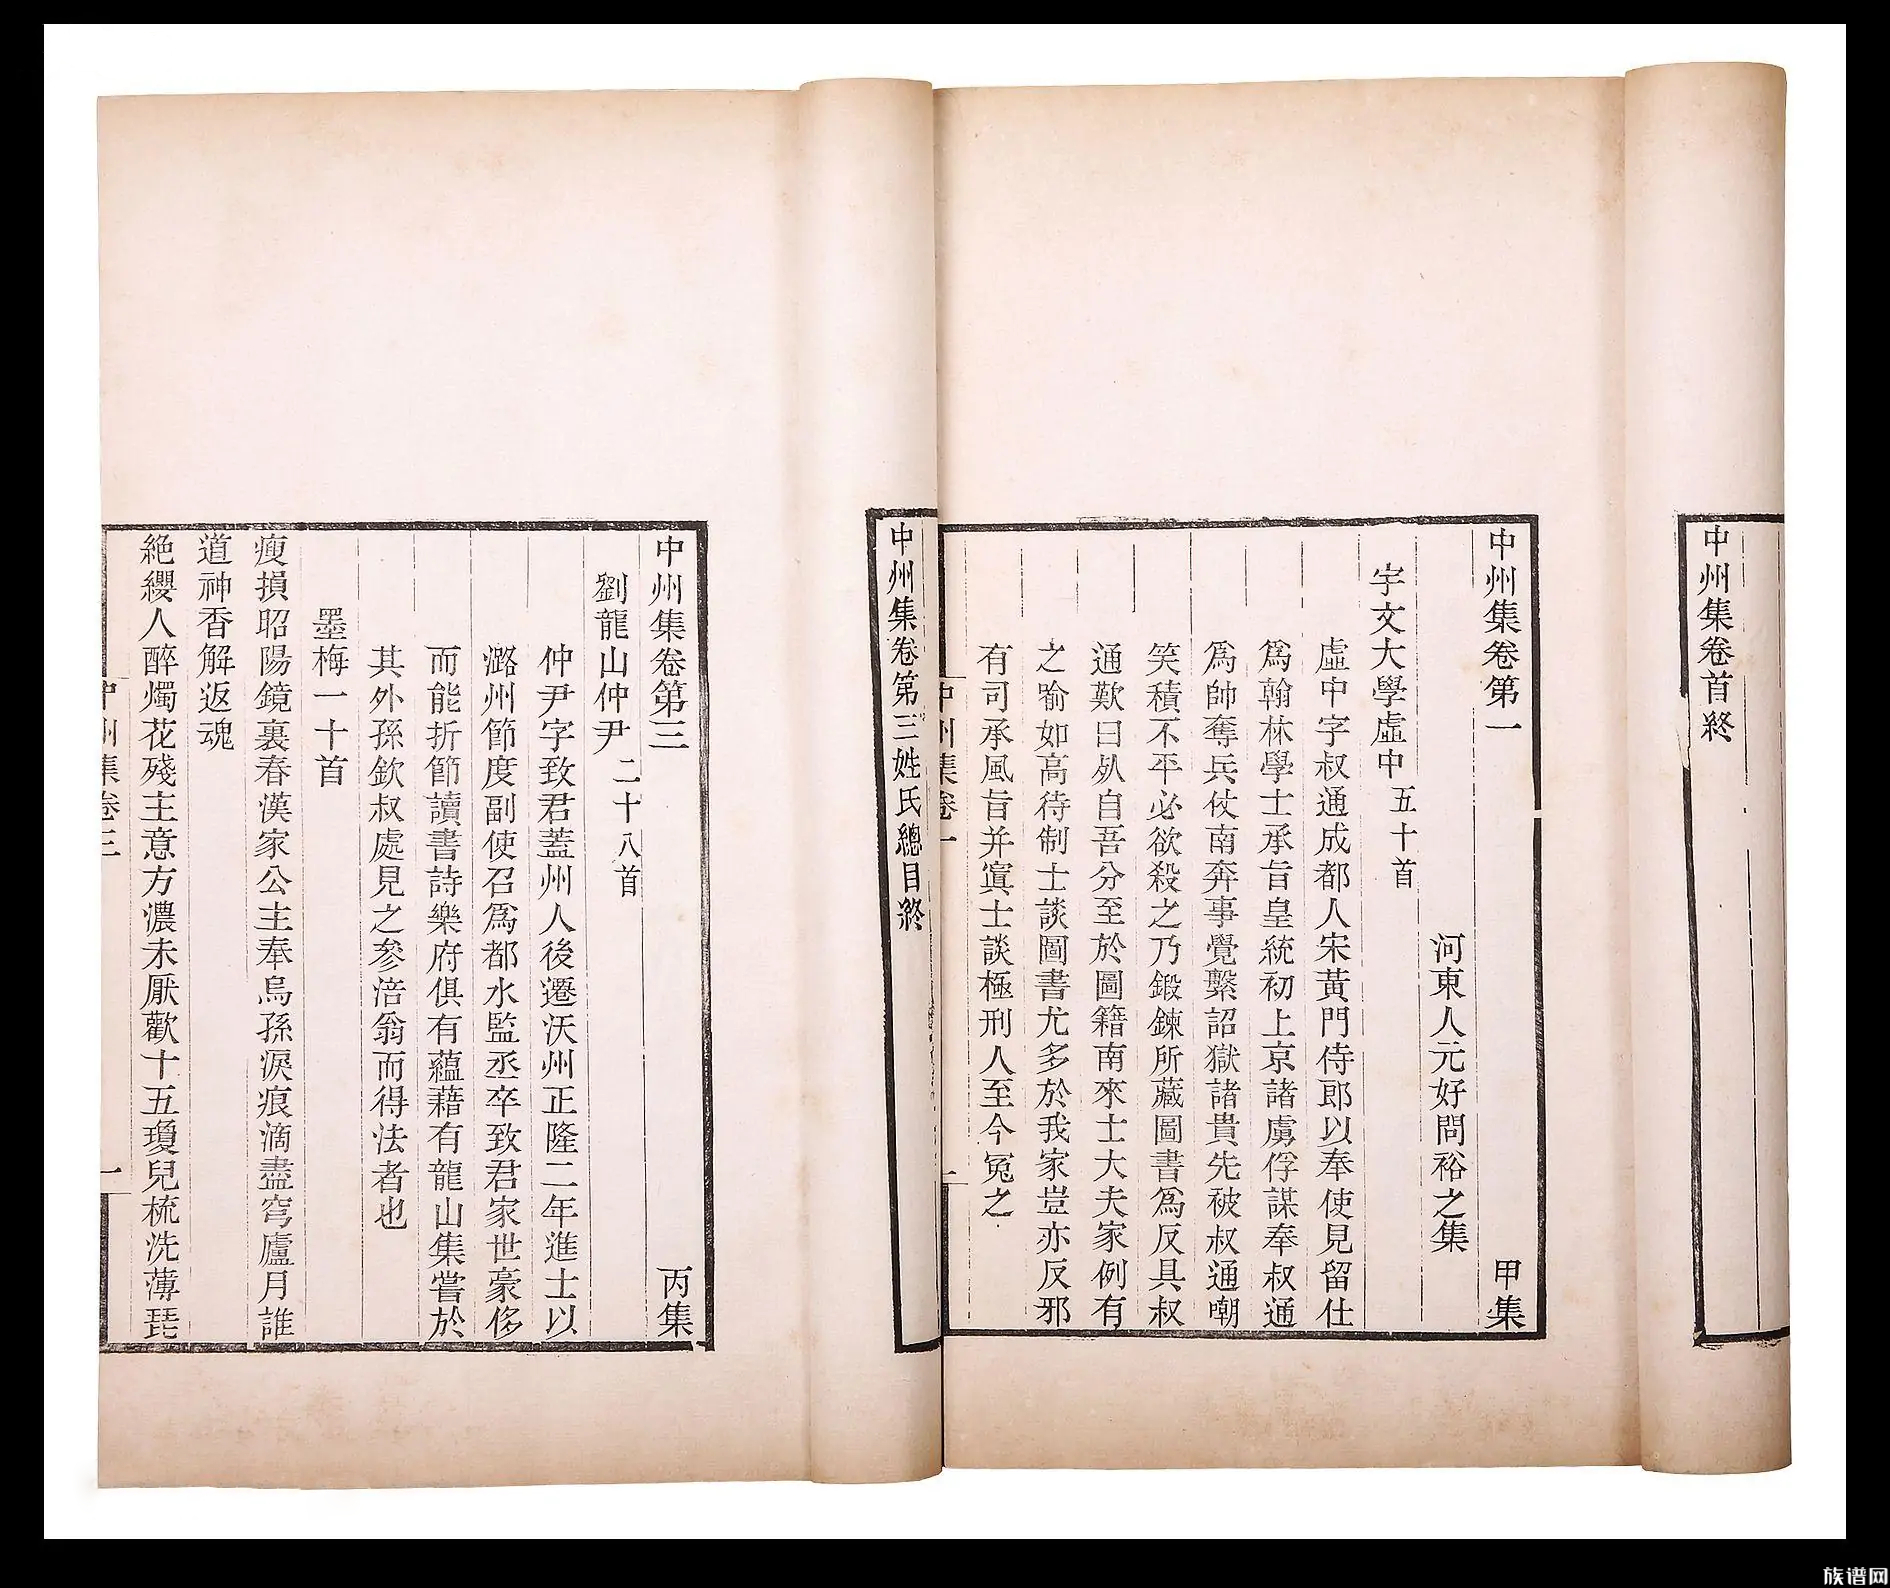 中州集卷首終
中州集卷第一　甲集
河東人元好問裕之集
宇文大學虛中 五十首
虛中字叔通成都人宋黃門侍郎以奉使見留仕
爲翰林學士承旨皇統初上京諸虜俘謀奉叔通
爲帥奪兵仗南奔事覺繫詔獄諸貴先被叔通嘲
笑積不平必欲殺之乃鍛鍊所藏圖書爲反具叔
通歎曰死自吾分至於圖籍南來士大夫家例有
之喻如高待制士談圖書尤多於我家豈亦反邪
有司承風旨并寘士談極刑人至今冤之
中州集卷一
一
中州集卷第三姓氏總目終
中州集卷第三　丙集
劉龍山仲尹 二十八首
仲尹字致君蓋州人後遷沃州正隆二年進士以
潞州節度副使召爲都水監丞卒致君家世豪侈
而能折節讀書詩樂府俱有蘊藉有龍山集嘗於
其外孫欽叔處見之參涪翁而得法者也
墨梅一十首
瘦損昭陽鏡裏春漢家公主奉烏孫淚痕滴盡穹廬月誰
道神香解返魂
絶纓人醉燭花殘主意方濃未厭歡十五瓊兒梳洗薄琵
中州集卷三
一
族谱网